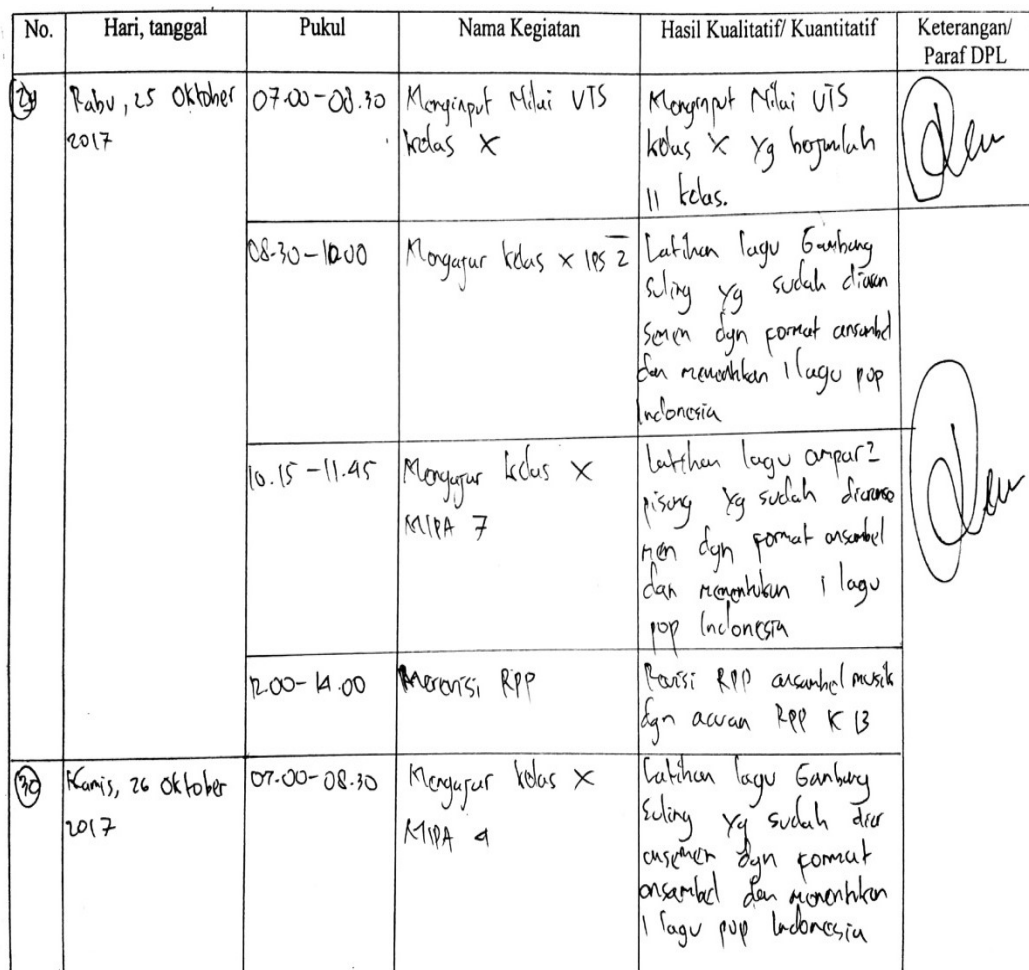 No. Hari, tanggal Pukul Nama Kegiatan Hasil Kualitatif/ Kuantitatif Keterangan/
Paraf DPL
29 Rabu, 25 Oktober 07.00-08.30 Menginput Nilai UTS Menginput Nilai UTS
2017 kelas X kelas X yg berjumlah
11 kelas.
08.30-10.00 Mengajar kelas X IPS 2 Latihan lagu Gambang
Suling yg sudah diaran
semen dgn format ansambel
dan menentukan 1 lagu pop
Indonesia
10.15-11.45 Mengajar kelas X Latihan lagu ampar2
MIPA 7 pisang yg sudah diaranse
men dgn format ansambel
dan menentukan 1 lagu
pop Indonesia
12.00-14.00 Merevisi RPP Revisi RPP ansambel musik
dgn acuan RPP K 13
30 Kamis, 26 Oktober 07.00-08.30 Mengajar kelas X Latihan lagu Gambang
2017 MIPA 4 Suling yg sudah diar
ansemen dgn format
ansambel dan menentukan
1 lagu pop Indonesia